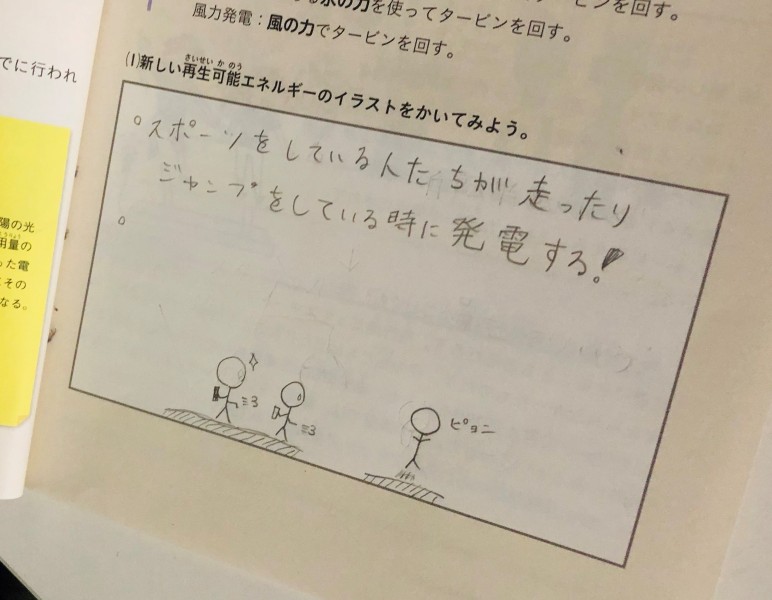 水の力を使ってタービンを回す。
風力発電：風の力でタービンを回す。
でに行われ
(1)新しい再生可能エネルギーのイラストをかいてみよう。
さいせいかのう
スポーツをしている人たちが走ったり
ジャンプをしている時に発電する！
陽の光
用量の
った電
その
なる。
ピョニ